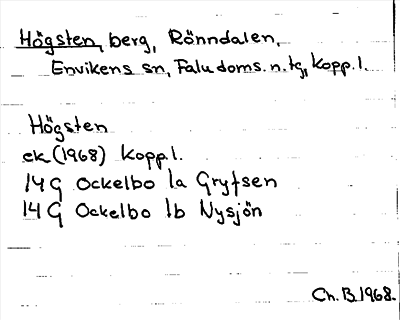 Högsten, berg, Rönndalen,
Envikens sn, Falu doms. n. tg, Kopp. l.
Högsten
ek (1968) Kopp. l.
14 G Ockelbo 1a Grytsen
14 G Ockelbo 1b Nysjön
Ch. B. 1968.